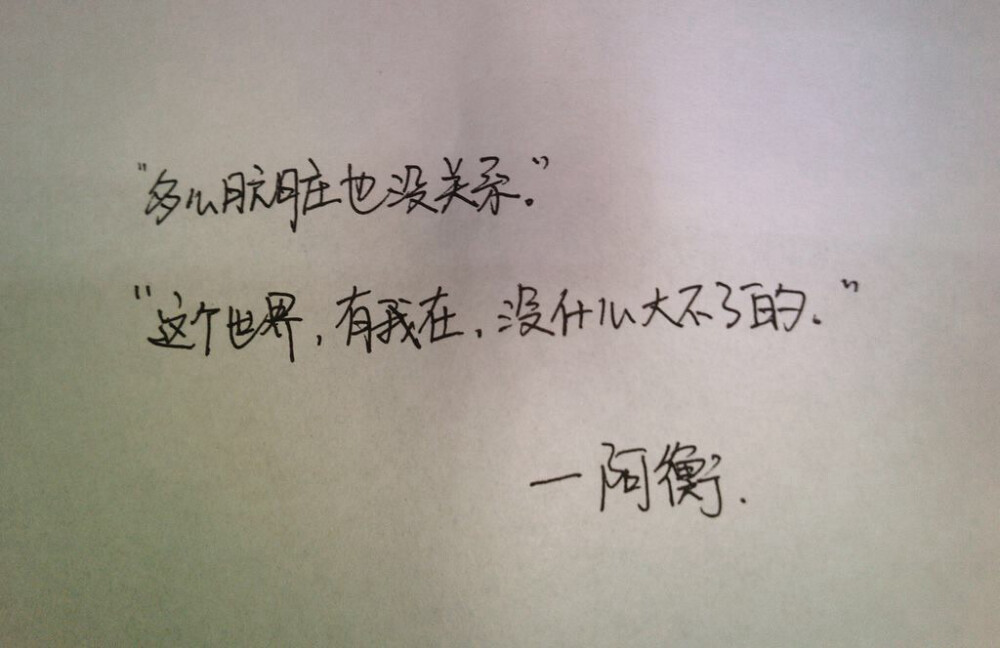 "多么肮脏也没关系."
"这个世界,有我在,没什么大不了的."
—阿衡.